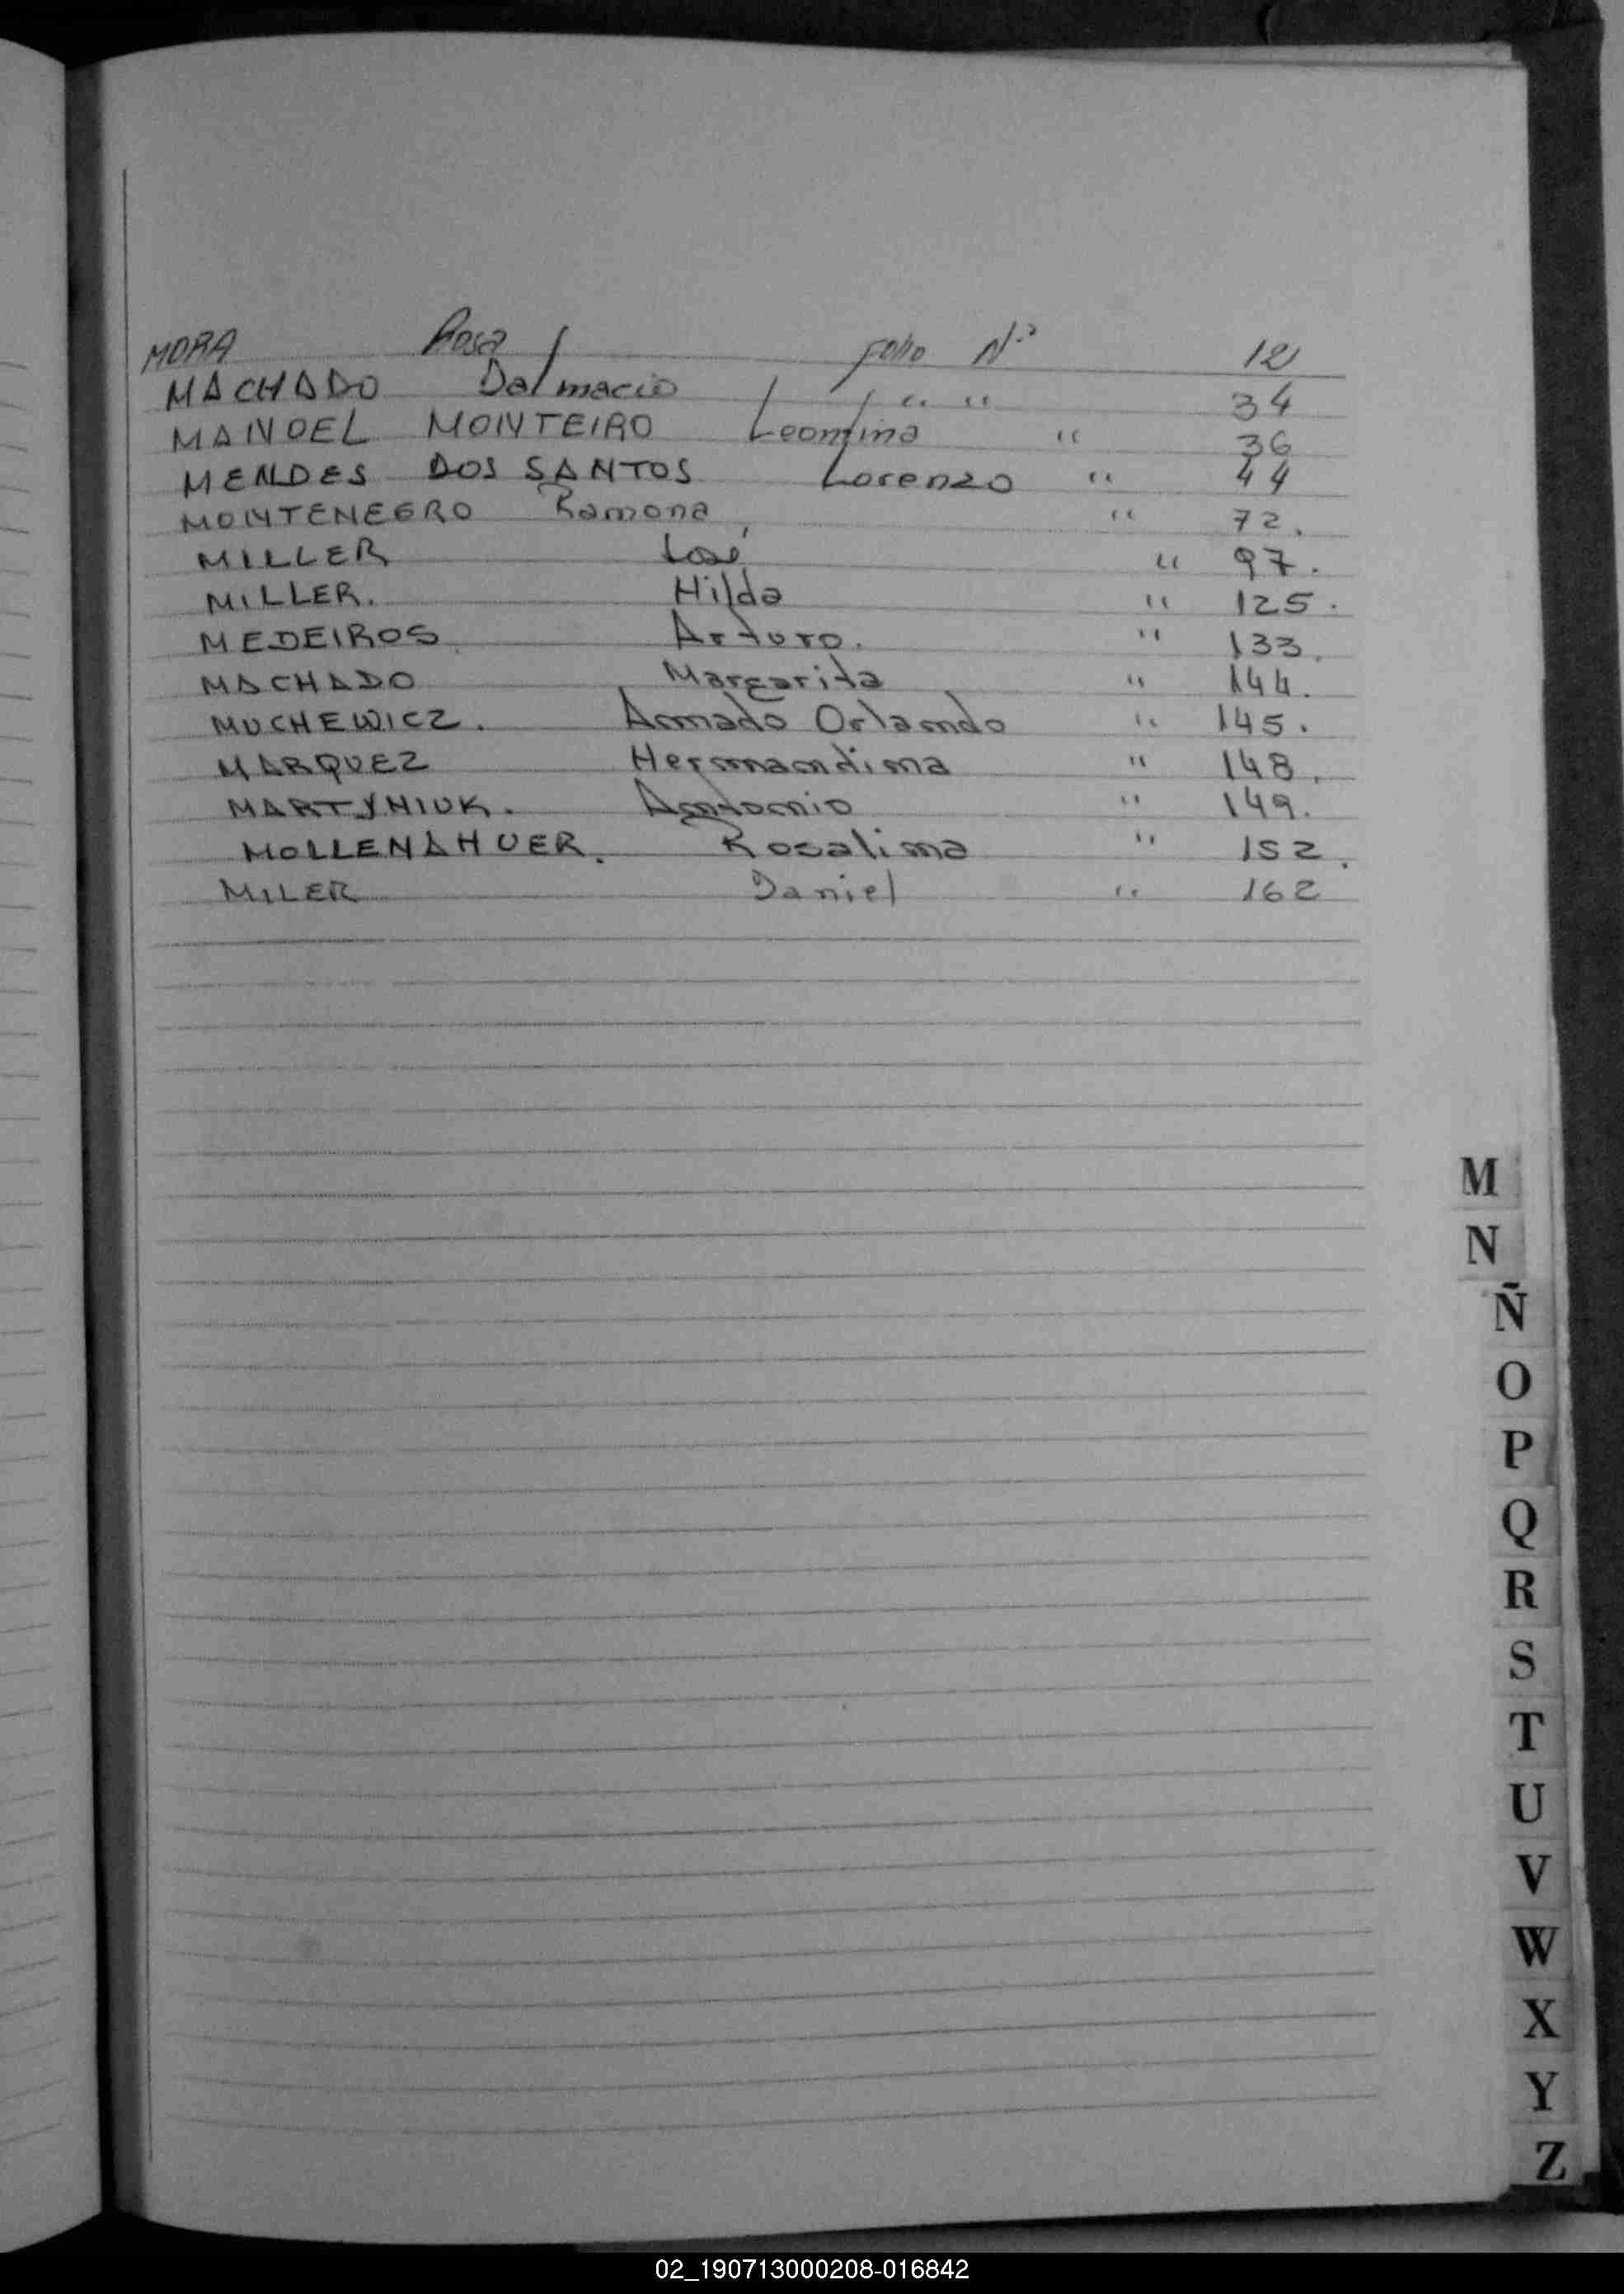 MORA Rosa Folio Nº 12
MACHADO Dalmacio " " 34
MANOEL MONTEIRO Leontina " 36
MENDES DOS SANTOS Lorenzo " 44
MONTENEGRO Ramona " 72.
MILLER José " 97.
MILLER. Hilda " 125.
MEDEIROS Arturo. " 133.
MACHADO Margarita " 144.
MUCHEWICZ. Amado Orlando " 145.
MARQUEZ Hernandina " 148.
MARTYNIUK. Antonio " 149.
MOLLENAHUER. Rosalina " 152.
MILER Daniel " 162
M
N
Ñ
O
P
Q
R
S
T
U
V
W
X
Y
Z
02_190713000208-016842